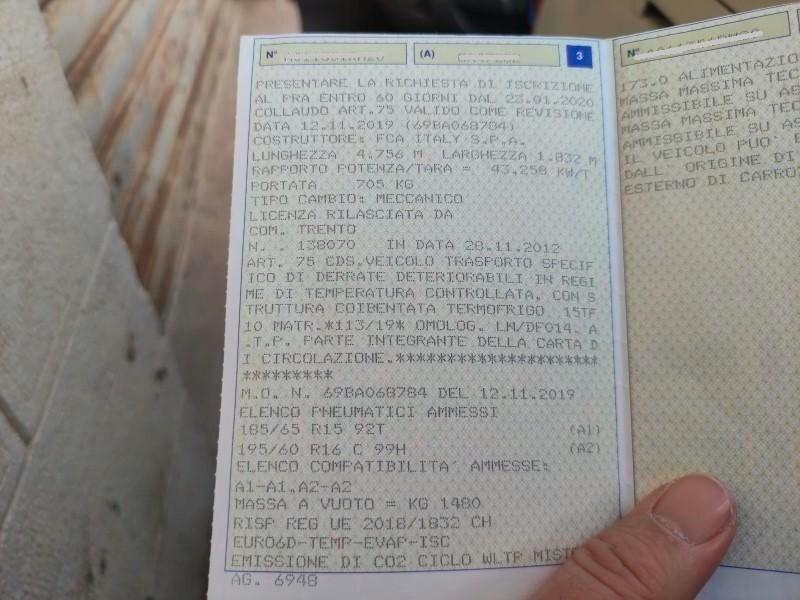 N°
(A)
3
PRESENTARE LA RICHIESTA DI ISCRIZIONE
AL PRA ENTRO 60 GIORNI DAL 23.01.2020
COLLAUDO ART.75 VALIDO COME REVISIONE
DATA 12.11.2019 (69BA068784)
COSTRUTTORE: FCA ITALY S.P.A.
LUNGHEZZA 4.756 M LARGHEZZA 1.832 M
RAPPORTO POTENZA/TARA = 43.258 KW/T
PORTATA 705 KG
TIPO CAMBIO: MECCANICO
LICENZA RILASCIATA DA
COM. TRENTO
N. . 138070 IN DATA 28.11.2012
ART. 75 CDS.VEICOLO TRASPORTO SPECIF
ICO DI DERRATE DETERIORABILI IN REGI
ME DI TEMPERATURA CONTROLLATA. CON S
TRUTTURA COIBENTATA TERMOFRIGO 15TF
10 MATR.*113/19* OMOLOG. LN/DF014. A
.T.P. PARTE INTEGRANTE DELLA CARTA D
I CIRCOLAZIONE.*********************
*********
M.O. N. 69BA068784 DEL 12.11.2019
ELENCO PNEUMATICI AMMESSI
185/65 R15 92T (A1)
195/60 R16 C 99H (A2)
ELENCO COMPATIBILITA' AMMESSE:
A1-A1.A2-A2
MASSA A VUOTO = KG 1480
RISP REG UE 2018/1832 CH
EURO6D-TEMP-EVAP-ISC
EMISSIONE DI CO2 CICLO WLTP
AG. 6948
N°
173.0 ALIMENTAZIO
MASSA MASSIMA TEC
AMMISSIBILE SU AS
MASSA MASSIMA TEC
AMMISSIBILE SU AS
IL VEICOLO PUO'
DALL' ORIGINE DI
ESTERNO DI CARRO